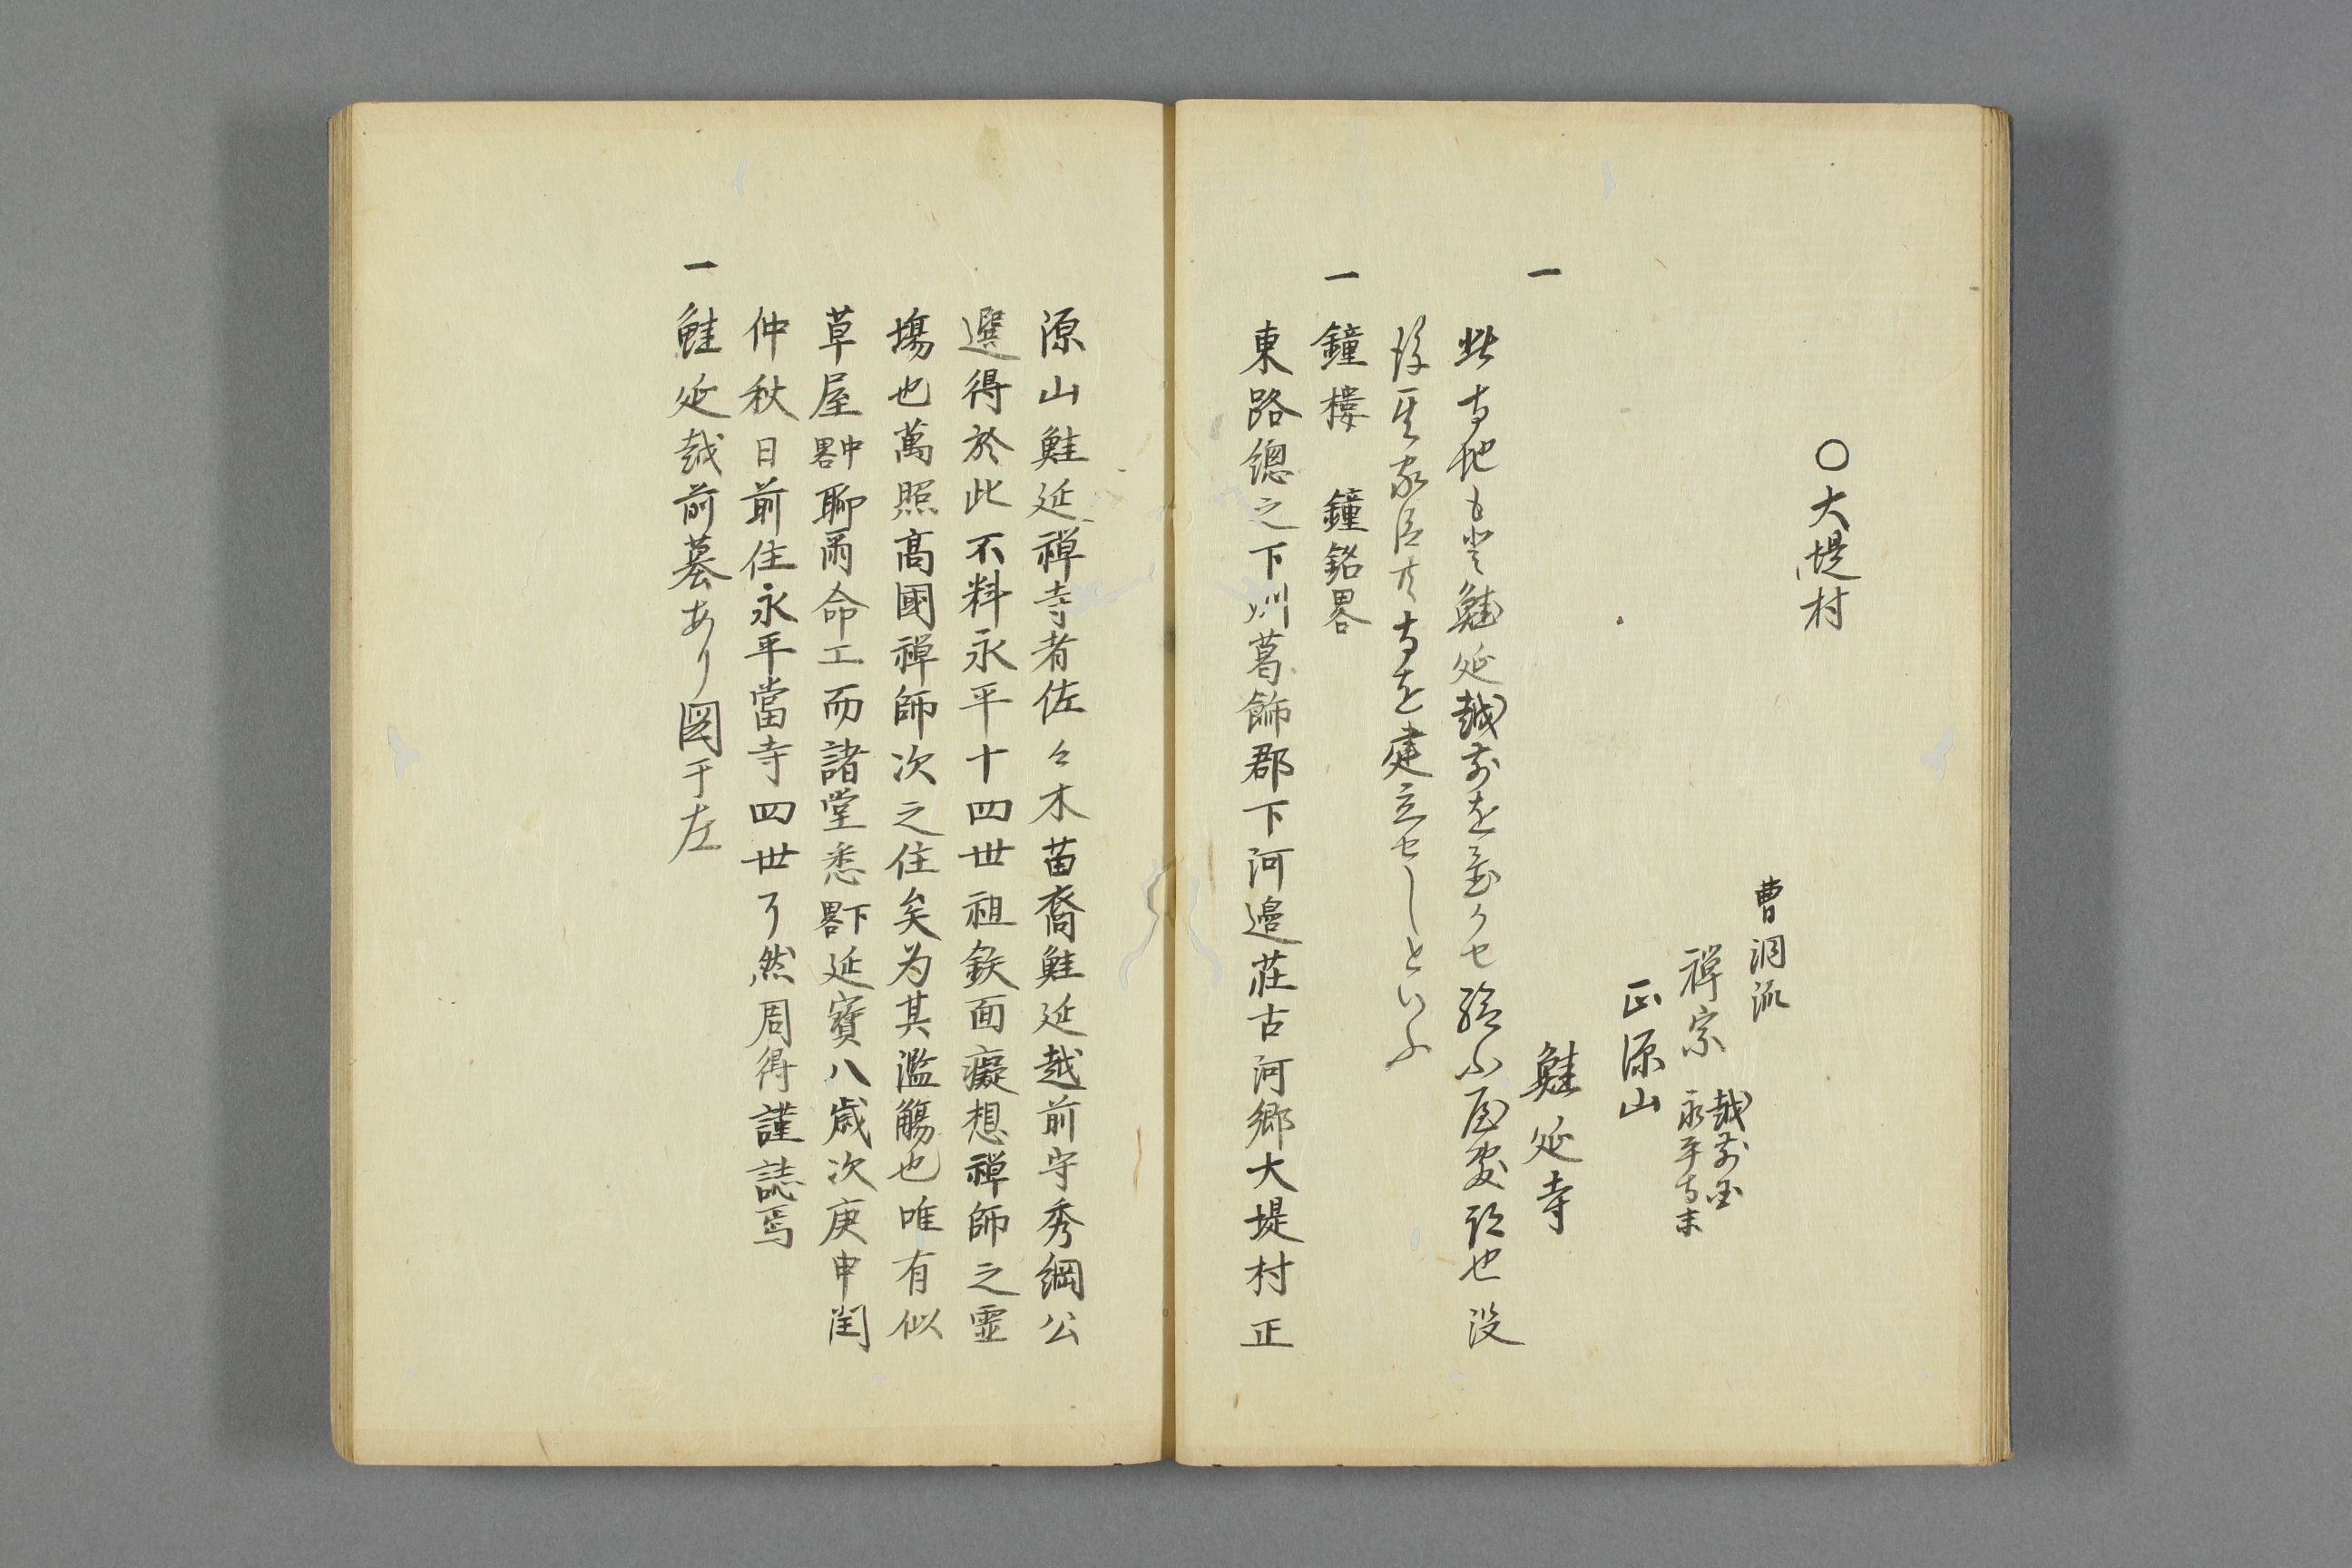 ○大堤村
曹洞流
禅宗 越前国永平寺末
正源山
一 鮭延寺
此寺地も登鮭延越前を預ケセ給ふ屋敷跡也没
後其家臣共寺を建立せしといふ
一 鐘樓 鐘銘畧
東路總之下州葛飾郡下河邉荘古河郷大堤村正
源山鮭延禅寺者佐々木苗裔鮭延越前守秀綱公
選得於此不料永平十四世祖鉄面癡想禅師之霊
塲也萬照高國禅師次之住矣為其濫觴也唯有似
草屋中畧聊爾命工而諸堂悉下畧延寳八歳次庚申閏
仲秋日前住永平當寺四世了然周得謹誌焉
一 鮭延越前墓あり図于左